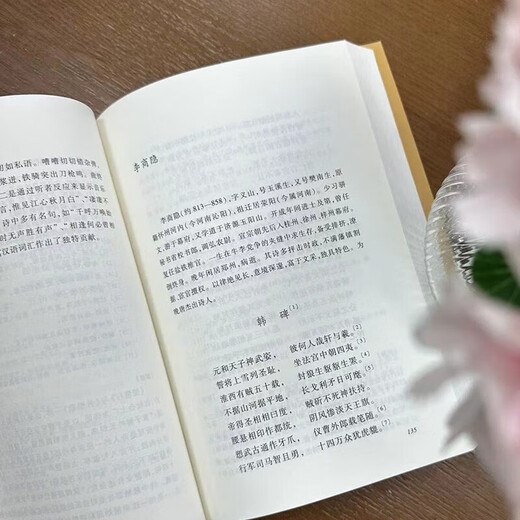 如私语。嘈嘈切切错杂弹，
浆迸，铁骑突出刀枪鸣。
二是通过听者反应来显示音乐
惟见江心秋月白”，
诗中多有名句，如“千呼万唤
时无声胜有声”、“相逢何必曾相
汉语词汇作出了独特贡献。
李商隐
李商隐(约813—858)，字义山，号玉溪生，又号樊南生，原
籍怀州河内(今河南沁阳)，祖迁居荥阳(今属河南)。少习骈
文，游于幕府，又学道于济源玉阳山。开成年间进士及第，曾任
秘书省校书郎，调弘农尉。宣宗朝先后入桂州、徐州、梓州幕府，
复任盐铁推官。一生在牛李党争的夹缝中求生存，备受排挤，潦
倒终身。晚年闲居郑州，病逝。其诗多抨击时政，不满藩镇割
据，宦官擅权。以律绝见长，意境深邃，富于文采，独具特色。为
晚唐杰出诗人。
韩碑[1]
元和天子神武姿，彼何人哉轩与羲。[2]
誓将上雪列圣耻，坐法宫中朝四夷。[3]
淮西有贼五十载，封狼生䝙䝙生罴。[4]
不据山河据平地，长戈利矛日可麾。[5]
帝得圣相相曰度，贼斫不死神扶持。
腰悬相印作都统，阴风惨淡天王旗。[6]
愬武古通作牙爪，仪曹外郎载笔随。[7]
行军司马智且勇，十四万众犹虎貔。
135